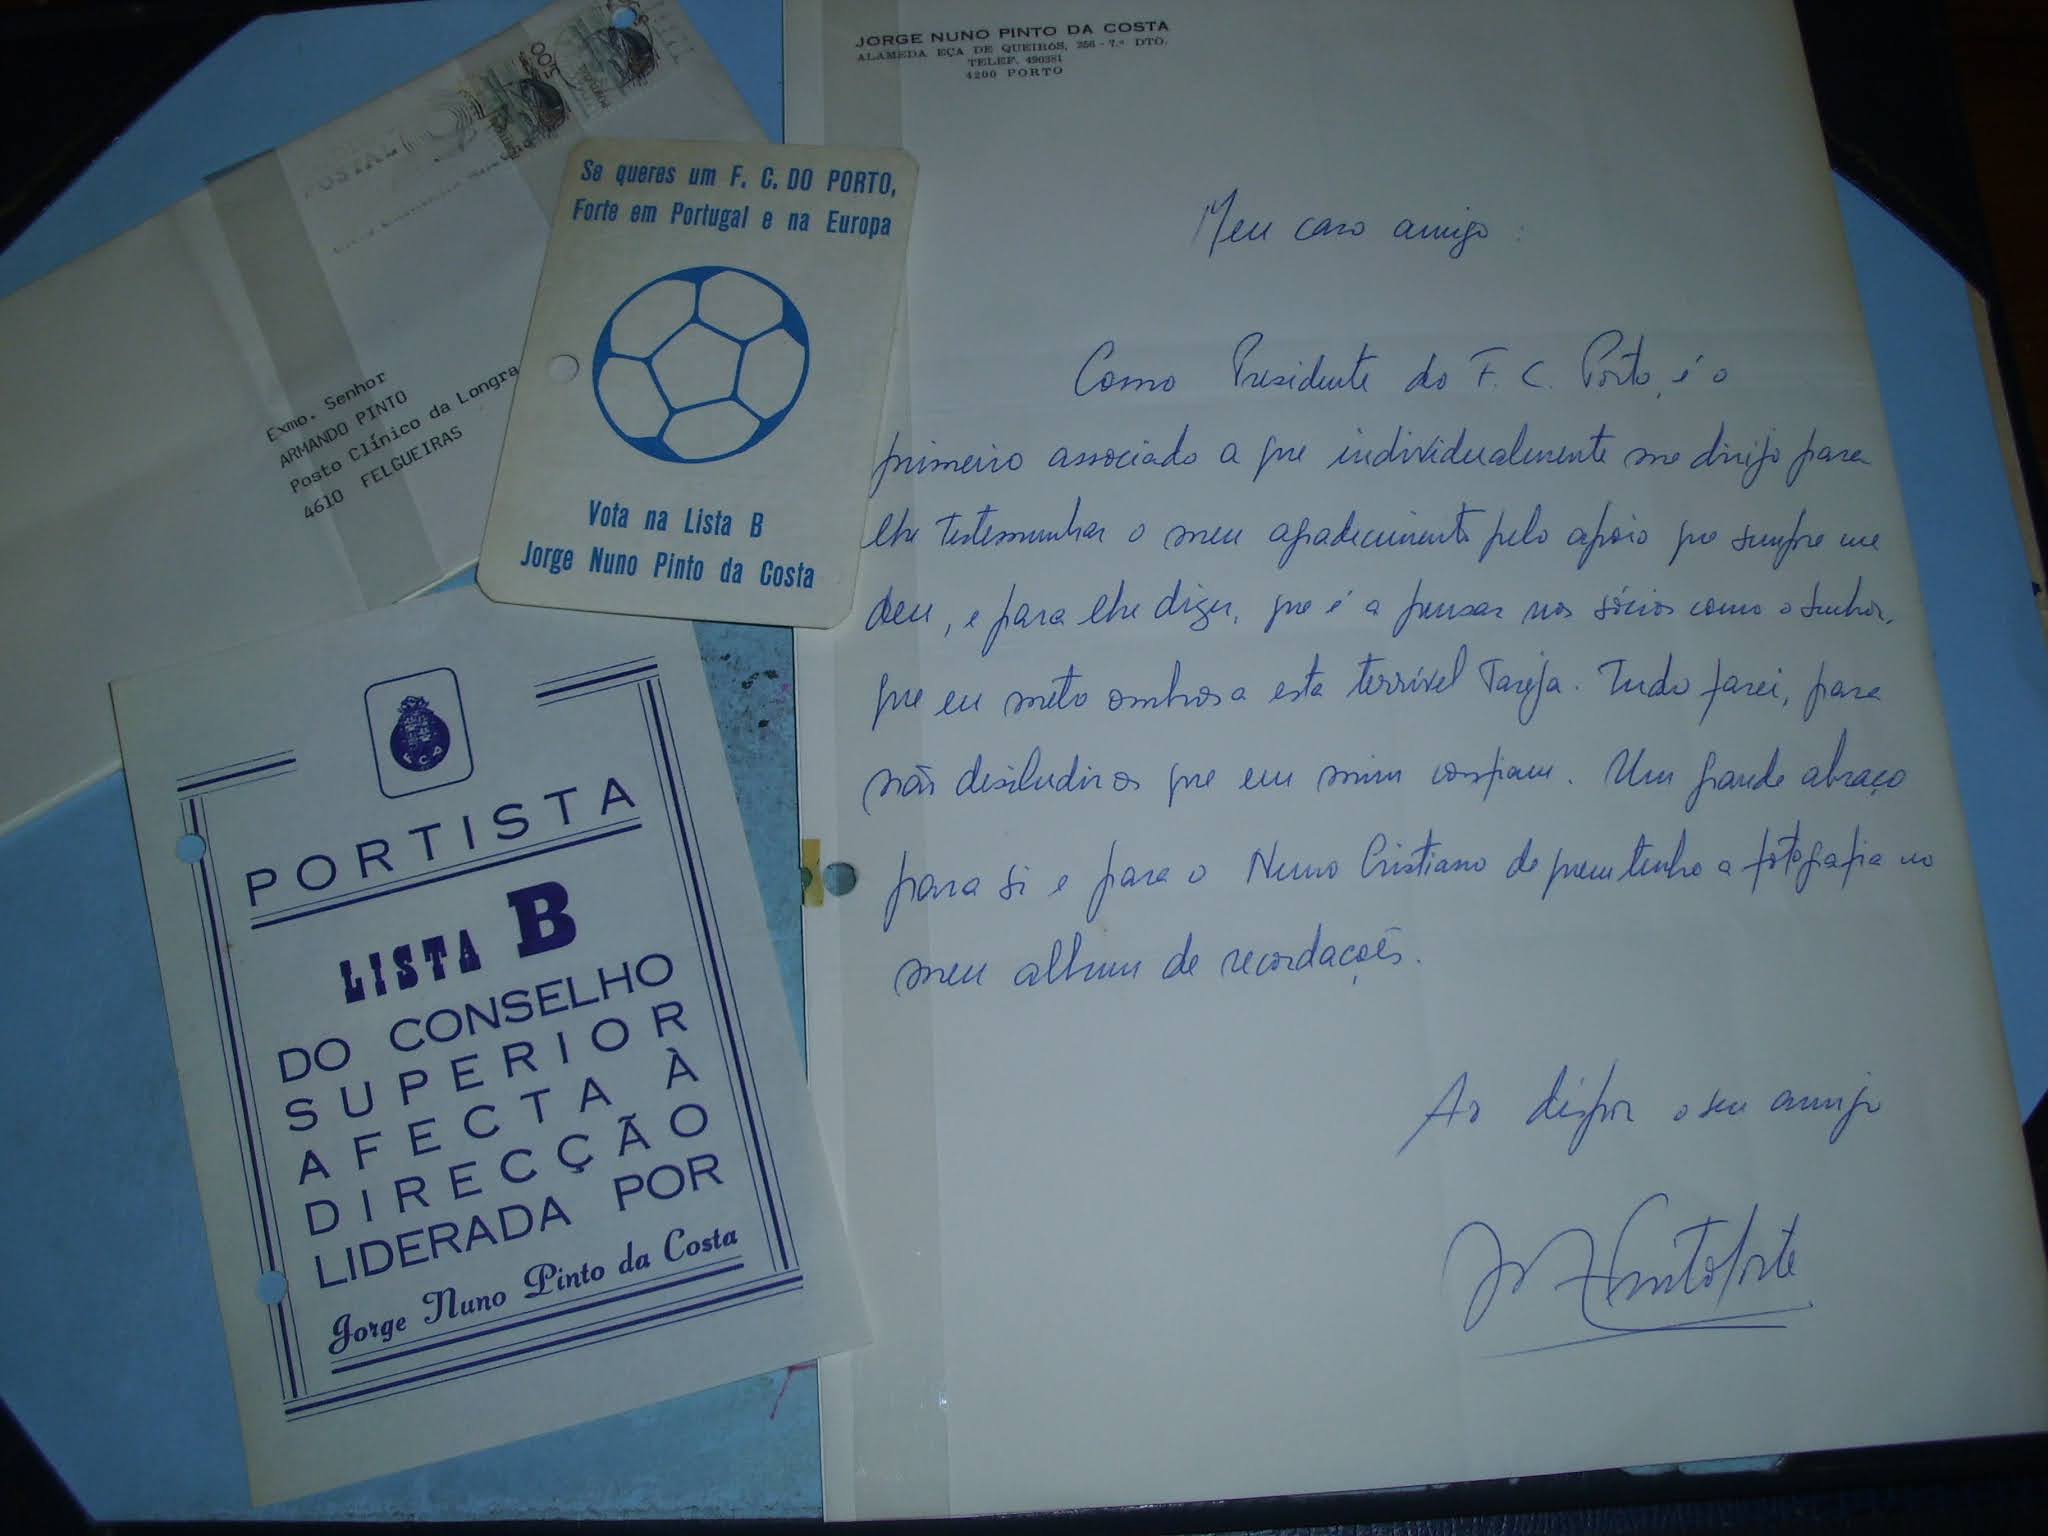 JORGE NUNO PINTO DA COSTA
ALAMEDA EÇA DE QUEIRÓS, 256 - 7.º DTO.
TELEF. 490381
4200 PORTO
Meu caro amigo:
Como Presidente do F. C. Porto, é o
primeiro associado a que individualmente me dirijo para
lhe testemunhar o meu agradecimento pelo apoio que sempre me
deu, e para lhe dizer, que é a pensar nos sócios como o senhor,
que eu meto ombros a esta terrível tarefa. Tudo farei, para
não desiludir os que em mim confiam. Um grande abraço
para si e para o Nuno Cristiano de quem tenho a fotografia no
meu album de recordações.
Ao dispor o seu amigo
Exmo. Senhor
ARMANDO PINTO
Posto Clínico da Longra
4610 FELGUEIRAS
5$00
Se queres um F. C. DO PORTO,
Forte em Portugal e na Europa
Vota na Lista B
Jorge Nuno Pinto da Costa
FCP
PORTISTA
LISTA B
DO CONSELHO
SUPERIOR
AFECTA À
DIRECÇÃO
LIDERADA POR
Jorge Nuno Pinto da Costa